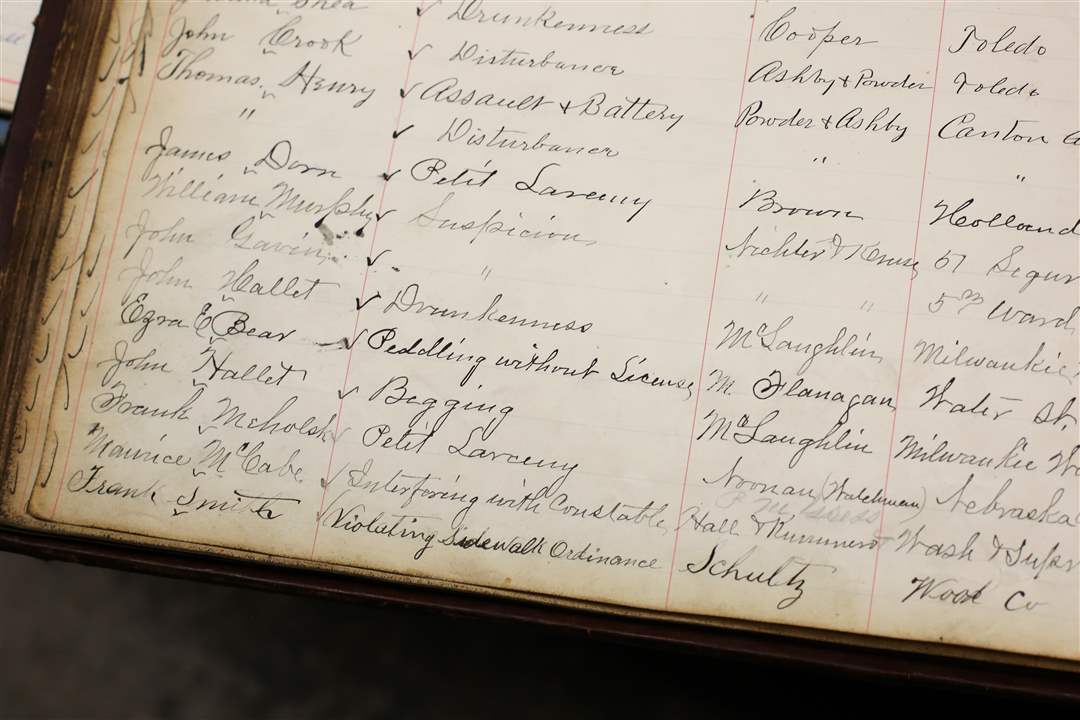 Shea Drunkenness Cooper Toledo
John Crook Disturbance Ashby & Powder Toledo
Thomas Henry Assault & Battery Powder & Ashby Canton
" Disturbance " "
James Dorn Petit Larceny Brown Holland
William Murphy Suspicion Nichter &
John Gavin " " " 5th Ward
John Hallet Drunkenness McLaughlin Milwaukie
Ezra E Bear Peddling without License M. Flanagan Water St.
John Hallet Begging McLaughlin Milwaukie
Frank Petit Larceny Noonan (Watchman) Nebraska
Maurice McCabe Interfering with Constable Hall & Wash &
Frank Smith Violating Sidewalk Ordinance Schultz Wood Co